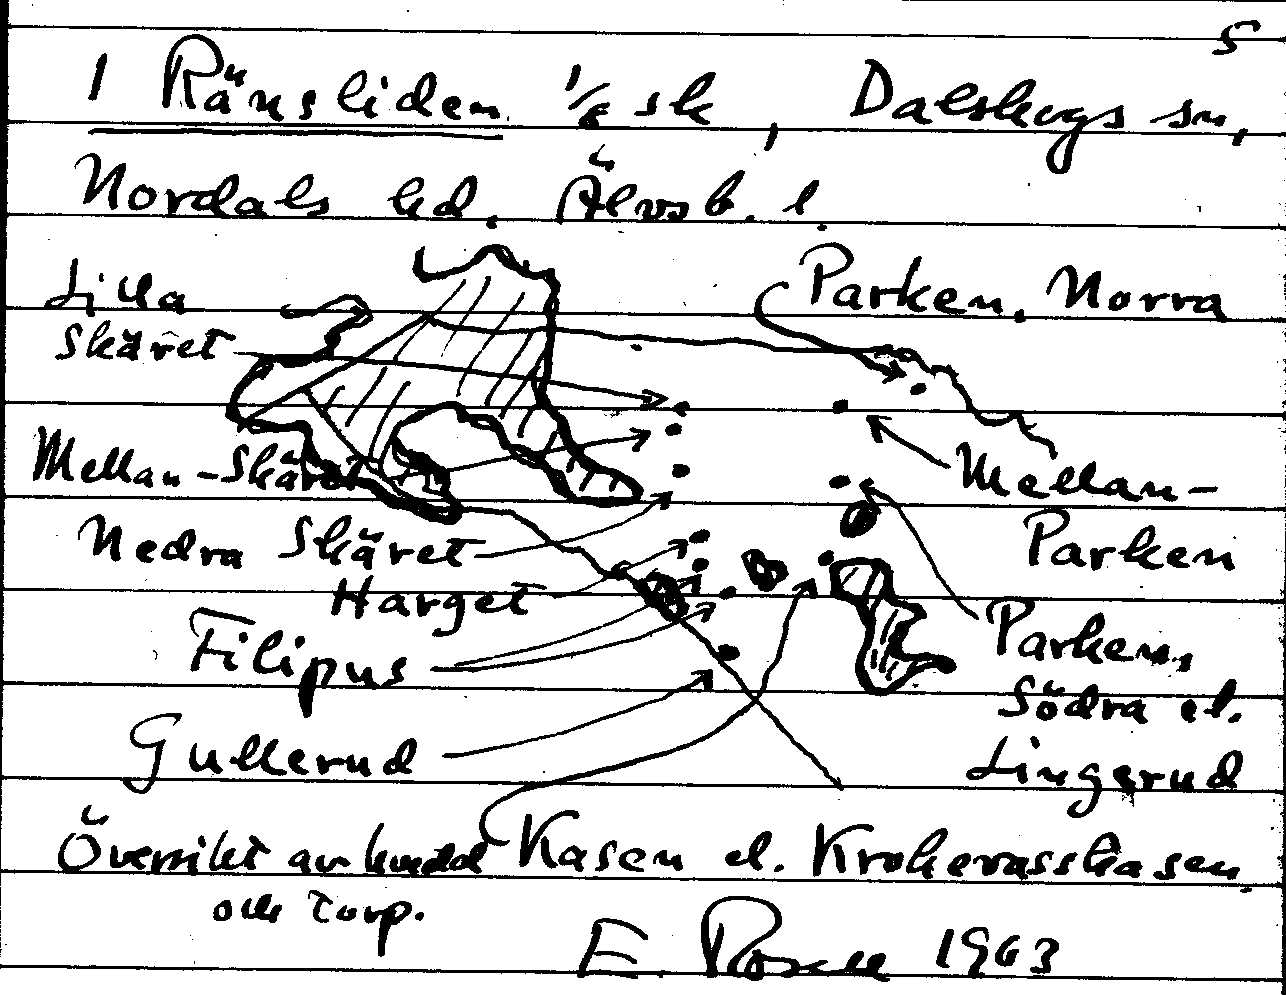 5
1 Ränsliden 1/6 sk, Dalskogs sn,
Nordals hd. Älvsb. l.
Lilla
Skäret
Parken, Norra
Mellan-Skäret
Mellan-
Parken
Nedra Skäret
Harget
Filipus
Parken,
Södra el.
Lingerud
Gullerud
Översikt av
Kasen el. Krokerasskasen
och torp.
E. Rosen 1963